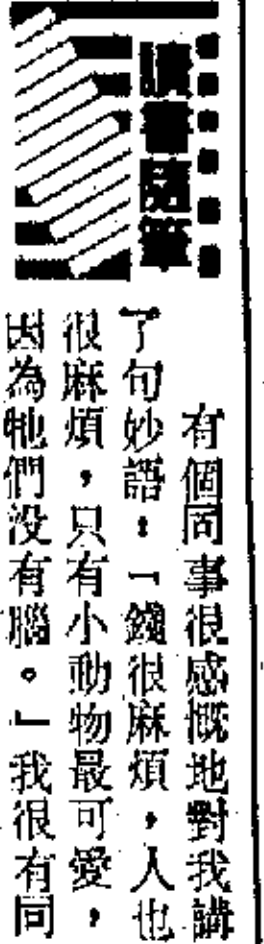 讀書隨筆
有個同事很感慨地對我講
了句妙語：「錢很麻煩，人也
很麻煩，只有小動物最可愛，
因為牠們沒有腦。」我很有同